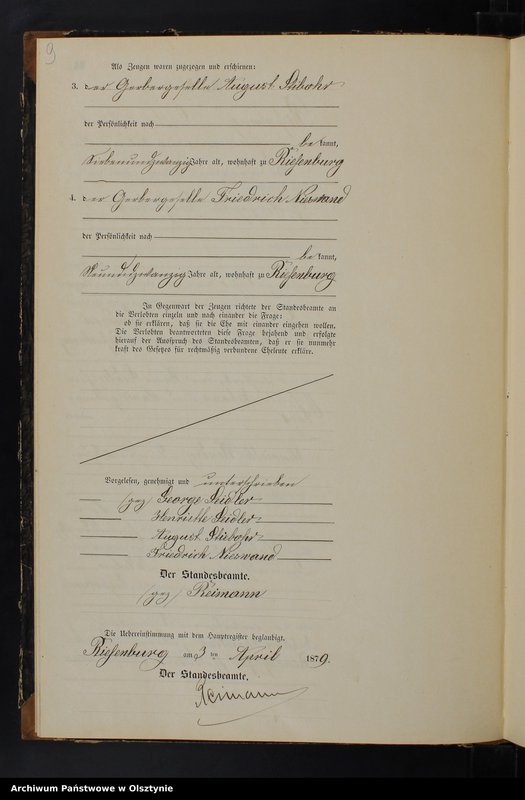 9
Als Zeugen waren zugezogen und erschienen:
3. der Gerbergeselle August Stibohr
der Persönlichkeit nach
be kannt,
Siebenundzwanzig Jahre alt, wohnhaft zu Riesenburg
4. der Gerbergeselle Friedrich Nieswand
der Persönlichkeit nach
be kannt,
Neunundzwanzig Jahre alt, wohnhaft zu Riesenburg
In Gegenwart der Zeugen richtete der Standesbeamte an
die Verlobten einzeln und nach einander die Frage:
ob sie erklären, daß sie die Ehe mit einander eingehen wollen.
Die Verlobten beantworteten diese Frage bejahend und erfolgte
hierauf der Ausspruch des Standesbeamten, daß er sie nunmehr
kraft des Gesetzes für rechtmäßig verbundene Eheleute erkläre.
Vorgelesen, genehmigt und unterschrieben
(gez) George Seidler
Henriette Seidler
August Stibohr
Friedrich Nieswand
Der Standesbeamte.
(gez) Reimann
Die Uebereinstimmung mit dem Hauptregister beglaubigt.
Riesenburg am 3 ten April 1879.
Der Standesbeamte.
Reimann
Archiwum Państwowe w Olsztynie